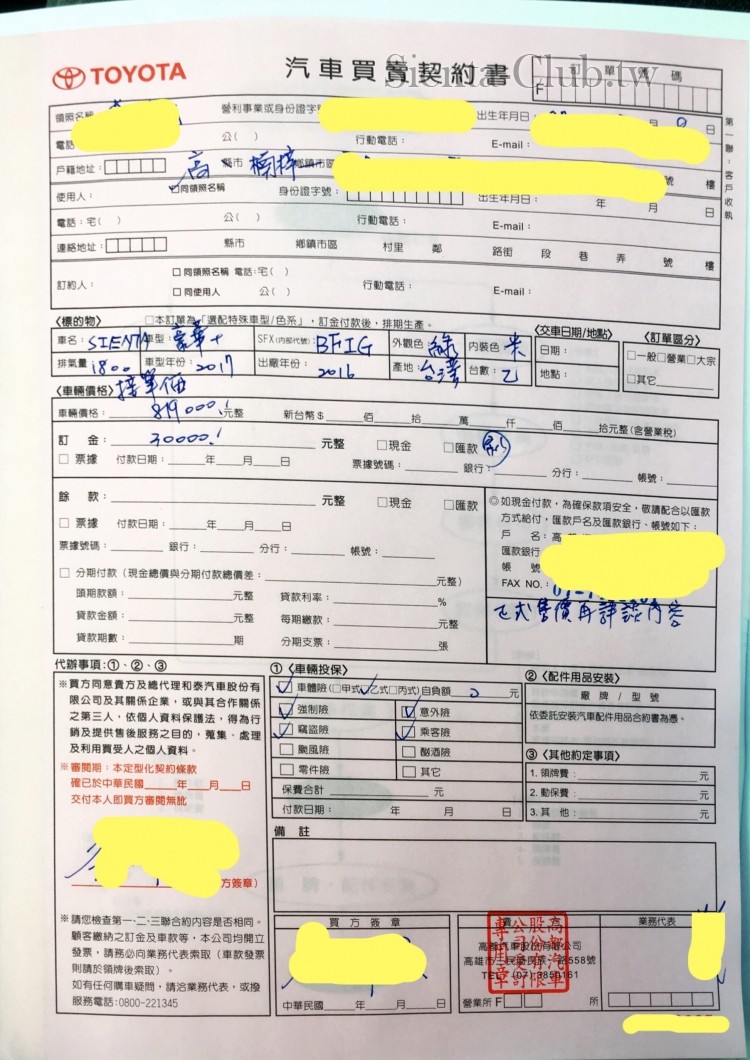 Sienta Club.tw
TOYOTA 汽車買賣契約書 訂單號碼
F
第一聯：客戶收執
領照名稱 營利事業或身份證字號 出生年月日： 月 日
電話 公( ) 行動電話： E-mail：
戶籍地址： 高 縣市 楠梓 鄉鎮市區 號 樓
使用人： ☑同領照名稱 身份證字號： 出生年月日： 年 月 日
電話：宅( ) 公( ) 行動電話： E-mail：
連絡地址： 縣市 鄉鎮市區 村里 鄰 路街 段 巷 弄 號 樓
訂約人： □同領照名稱 電話：宅( ) 行動電話： E-mail：
□同使用人 公( )
〈標的物〉 □本訂單為「選配特殊車型/色系」，訂金付款後，排期生產。 〈交車日期/地點〉 〈訂單區分〉
車名：SIENTA 車型：豪華+ SFX(內部代號)：BFIG 外觀色 綠 內裝色 米 日期： □一般□營業□大宗
排氣量 1800 車型年份：2017 出廠年份：2016 產地：台灣 台數：乙 地點： □其它
〈車輛價格〉接單價
車輛價格：819000.! 元整 新台幣$ 佰 拾 萬 仟 佰 拾元整(含營業稅)
訂 金：30000.! 元整 □現金 □匯款 刷
□票據 付款日期： 年 月 日 票據號碼： 銀行： 分行： 帳號：
餘 款： 元整 □現金 □匯款
□票據 付款日期： 年 月 日
票據號碼： 銀行： 分行： 帳號：
□分期付款（現金總價與分期付款總價差： 元整）
頭期款額： 元整 貸款利率： %
貸款金額： 元整 每期繳款： 元整
貸款期數： 期 分期支票： 張
◎如現金付款，為確保款項安全，敬請配合以匯款
方式給付，匯款戶名及匯款銀行、帳號如下：
戶 名：高
匯款銀行
帳 號
FAX NO.：
正式售價再詳談內容
代辦事項：①、②、③
※買方同意貴方及總代理和泰汽車股份有
限公司及其關係企業，或與其合作關係
之第三人，依個人資料保護法，得為行
銷及提供售後服務之目的，蒐集、處理
及利用買受人之個人資料。
※審閱期：本定型化契約條款
確已於中華民國 年 月 日
交付本人即買方審閱無訛
方簽章）
※請您檢查第一.二.三聯合約內容是否相同。
顧客繳納之訂金及車款等，本公司均開立
發票，請務必向業務代表索取（車款發票
則請於領牌後索取）。
如有任何購車疑問，請洽業務代表，或撥
服務電話：0800-221345
①〈車輛投保〉
☑車體險(□甲式☑乙式□丙式)自負額 0 元
☑強制險 ☑意外險
☑竊盜險 ☑乘客險
□颱風險 □酗酒險
□零件險 □其它
保費合計 元
付款日期： 年 月 日
②〈配件用品安裝〉
廠 牌 / 型 號
依委託安裝汽車配件用品合約書為憑。
③〈其他約定事項〉
1. 領牌費： 元
2. 動保費： 元
3. 其 他： 元
備 註
買 方 簽 章
中華民國 年 月 日
賣 方
高都汽車股份有限公司
高雄市三民區 路558號
TEL：(07)3850161
營業所 F 所
業務代表